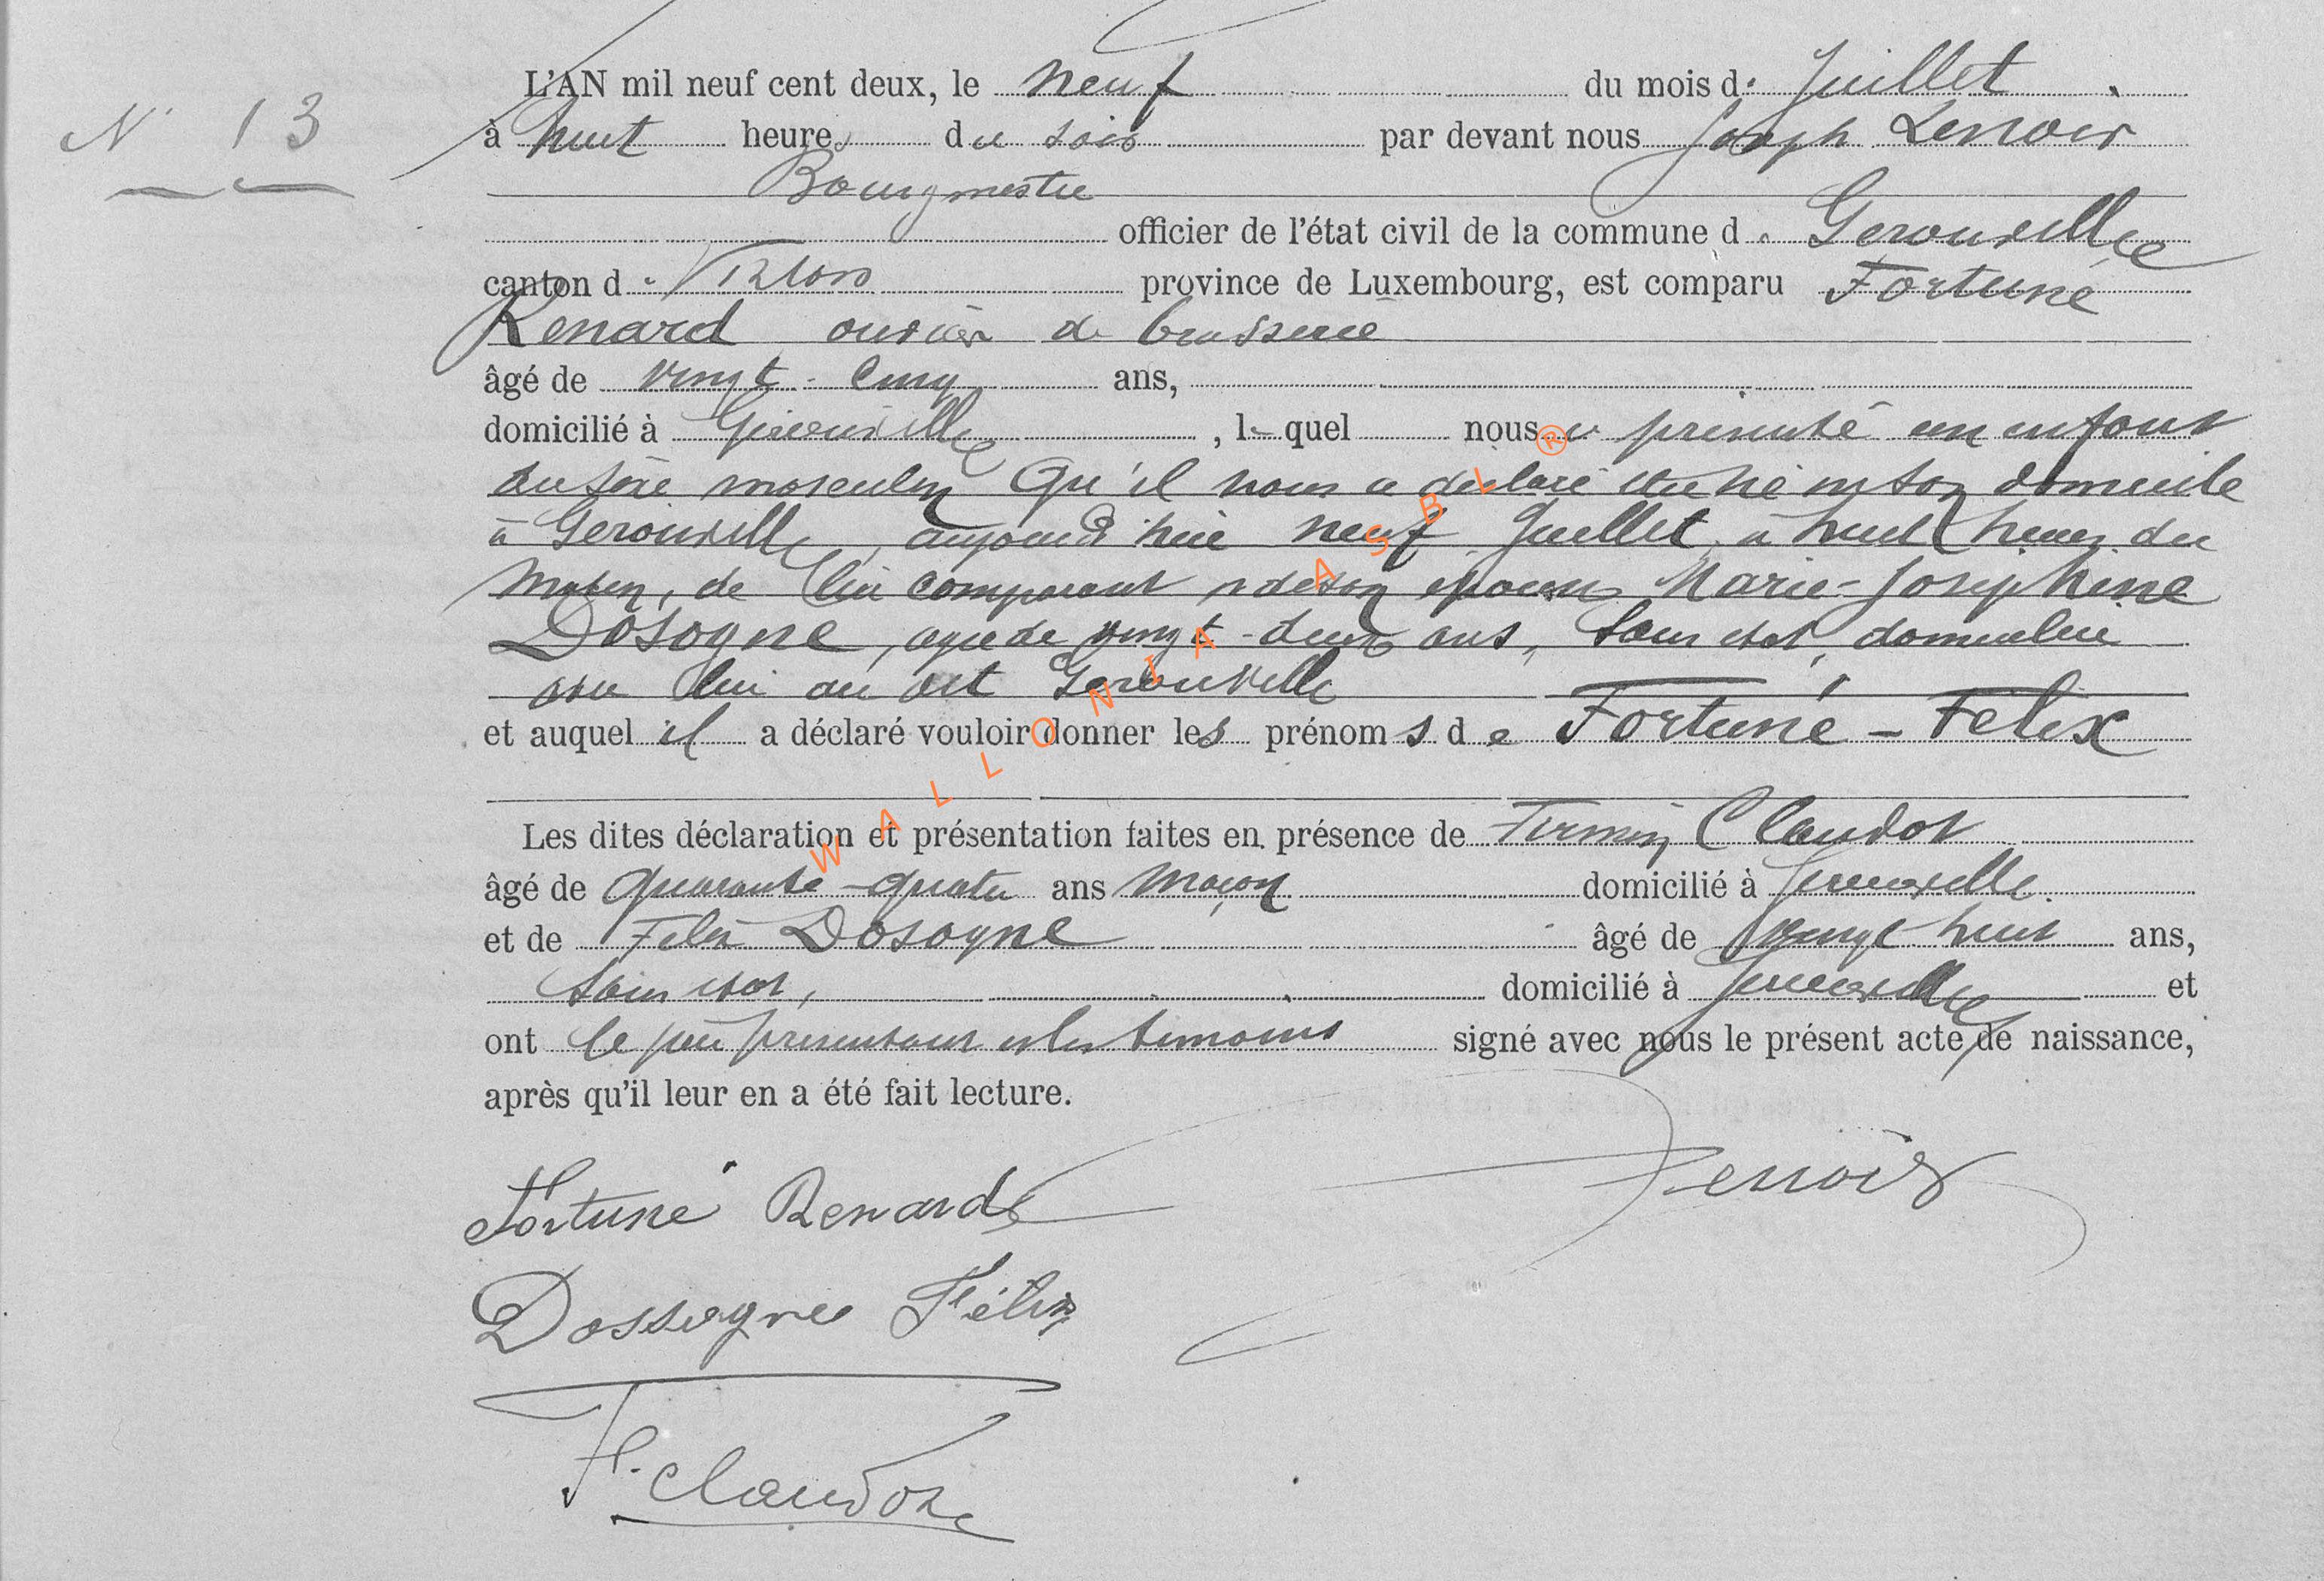 L'AN mil neuf cent deux, le neuf du mois de Juillet
N° 13
à huit heures du soir par devant nous Joseph Lenoir
Bourgmestre
officier de l'état civil de la commune de Gerouville
canton de Virton province de Luxembourg, est comparu Fortuné
Renard ouvrier de brasserie
âgé de vingt-cinq ans,
domicilié à Gérouville, lequel nous a présenté un enfant
du sexe masculin Qu'il nous a déclaré être né en son domicile
à Gerouville, aujourd'hui neuf Juillet, à huit heures du
matin, de lui comparant et de son épouse Marie-Josephine
Dosogne, agée de vingt-deux ans, sans état, domiciliée
avec lui au dit Gerouville
et auquel il a déclaré vouloir donner les prénoms de Fortuné - Félix
Les dites déclaration et présentation faites en présence de Firmin Claudot
âgé de quarante-quatre ans maçon domicilié à Gerouville.
et de Félix Dosogne âgé de vingt huit ans,
sans état, domicilié à Gerouville et
ont le père présentant et les témoins signé avec nous le présent acte de naissance,
après qu'il leur en a été fait lecture.
Fortuné Renard Lenoir
Dossogne Félix
F. Claudot
WALLONIA ASBL ®